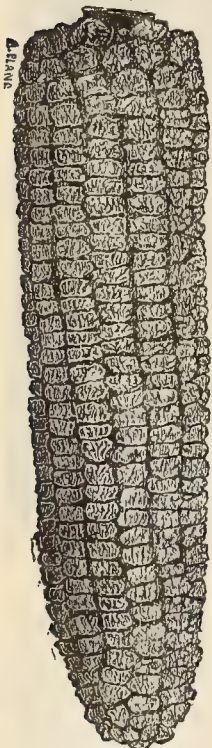 A. BLANC